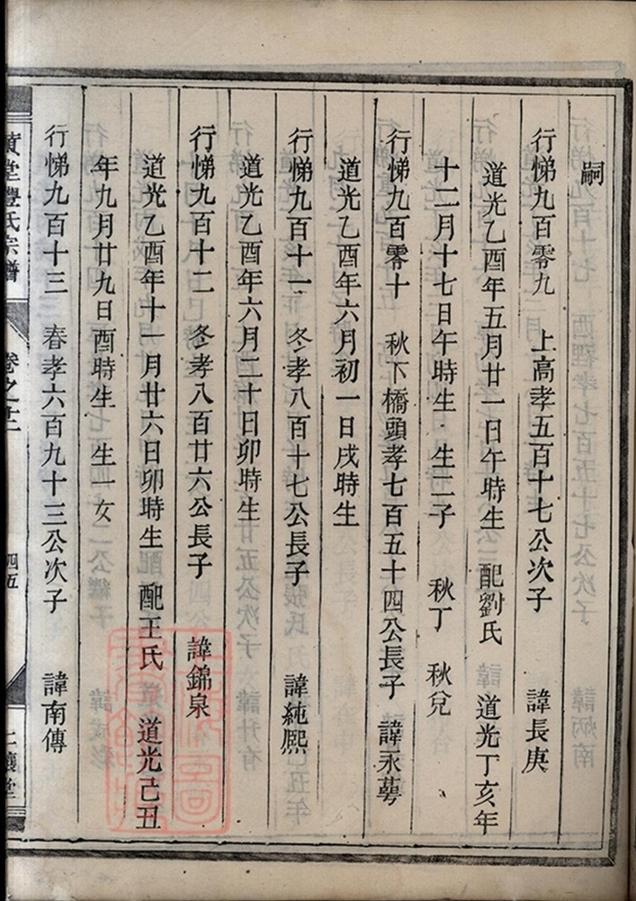 嗣
行悌九百零九 上高孝五百十七公次子 諱長庚
道光乙酉年五月廿一日午時生 配劉氏 道光丁亥年
十二月十七日午時生 生二子 秋丁 秋兌
行悌九百零十 秋下橋頭孝七百五十四公長子 諱永蕚
道光乙酉年六月初一日戌時生
行悌九百十一 冬孝八百十七公長子 諱純熙
道光乙酉年六月二十日卯時生
行悌九百十二 冬孝八百廿六公長子 諱錦泉
道光乙酉年十一月廿六日卯時生 配王氏 道光己丑
年九月廿九日酉時生 生一女
行悌九百十三 春孝六百九十三公次子 諱南傳
堂豊氏宗譜 卷之廿二 四五 仁讓堂